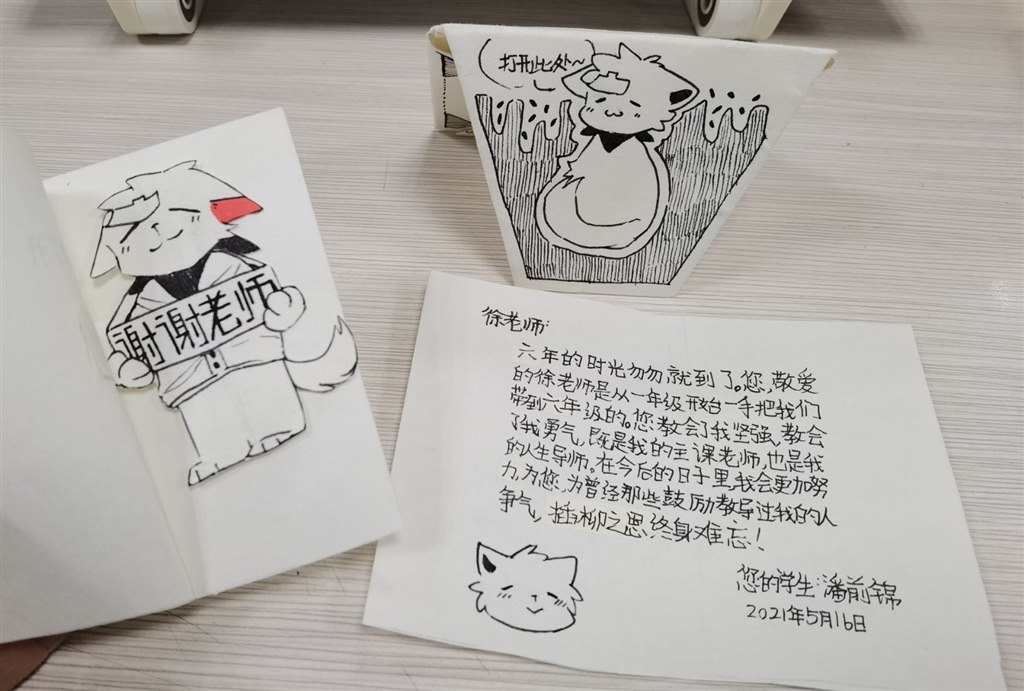 打开此处~
谢谢老师
徐老师:
六年的时光匆匆就到了。您,敬爱
的徐老师是从一年级开始一手把我们
带到六年级的。您教会了我坚强,教会
了我勇气,既是我的主课老师,也是我
的人生导师。在今后的日子里,我会更加努
力,为您,为曾经那些鼓励教导过我的人
争气,插柳之恩终身难忘!
您的学生:潘前锦
2021年5月16日